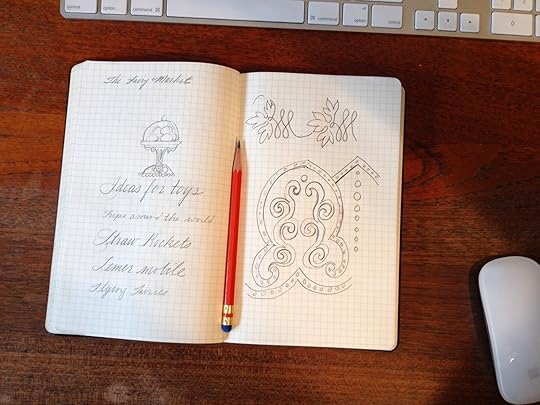 The Fairy Market
Ideas for toys
Trips around the world
Straw Rockets
Lemur mobile
Flying Fairies
option
command ⌘
⌘ command
option
control
0